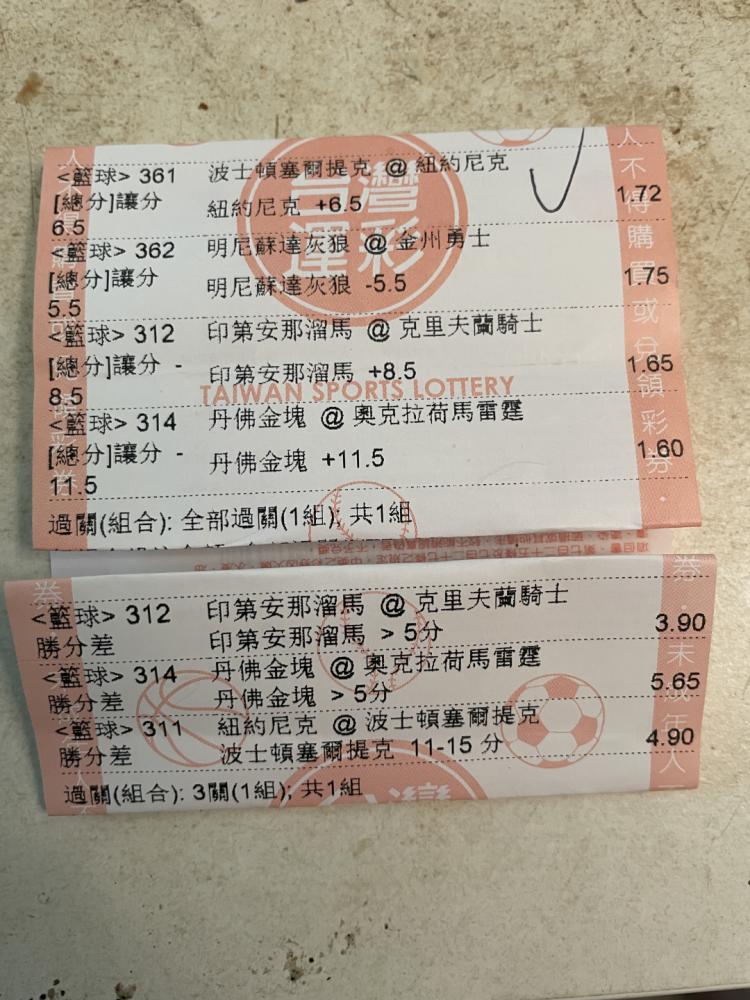 <籃球> 361 波士頓塞爾提克 @ 紐約尼克
[總分]讓分 紐約尼克 +6.5 1.72
6.5
<籃球> 362 明尼蘇達灰狼 @ 金州勇士
[總分]讓分 明尼蘇達灰狼 -5.5 1.75
5.5
<籃球> 312 印第安那溜馬 @ 克里夫蘭騎士
[總分]讓分 - 印第安那溜馬 +8.5 1.65
8.5
TAIWAN SPORTS LOTTERY
<籃球> 314 丹佛金塊 @ 奧克拉荷馬雷霆
[總分]讓分 - 丹佛金塊 +11.5 1.60
11.5
過關(組合): 全部過關(1組); 共1組
台灣
運彩
人不得購買或兌領彩券.
<籃球> 312 印第安那溜馬 @ 克里夫蘭騎士
勝分差 印第安那溜馬 > 5分 3.90
<籃球> 314 丹佛金塊 @ 奧克拉荷馬雷霆
勝分差 丹佛金塊 > 5分 5.65
<籃球> 311 紐約尼克 @ 波士頓塞爾提克
勝分差 波士頓塞爾提克 11-15 分 4.90
過關(組合): 3關(1組); 共1組
券.未成年人